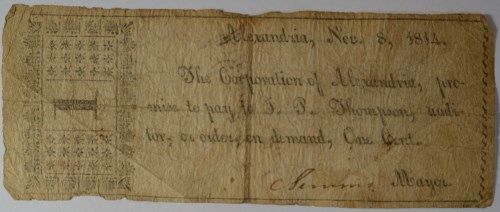 Alexandria, Nov. 8, 1814.
The Corporation of Alexandria, pro-
mise to pay to I. P. Thompson, audi-
tor, or order, on demand, One Cent.
Simms Mayor.
I